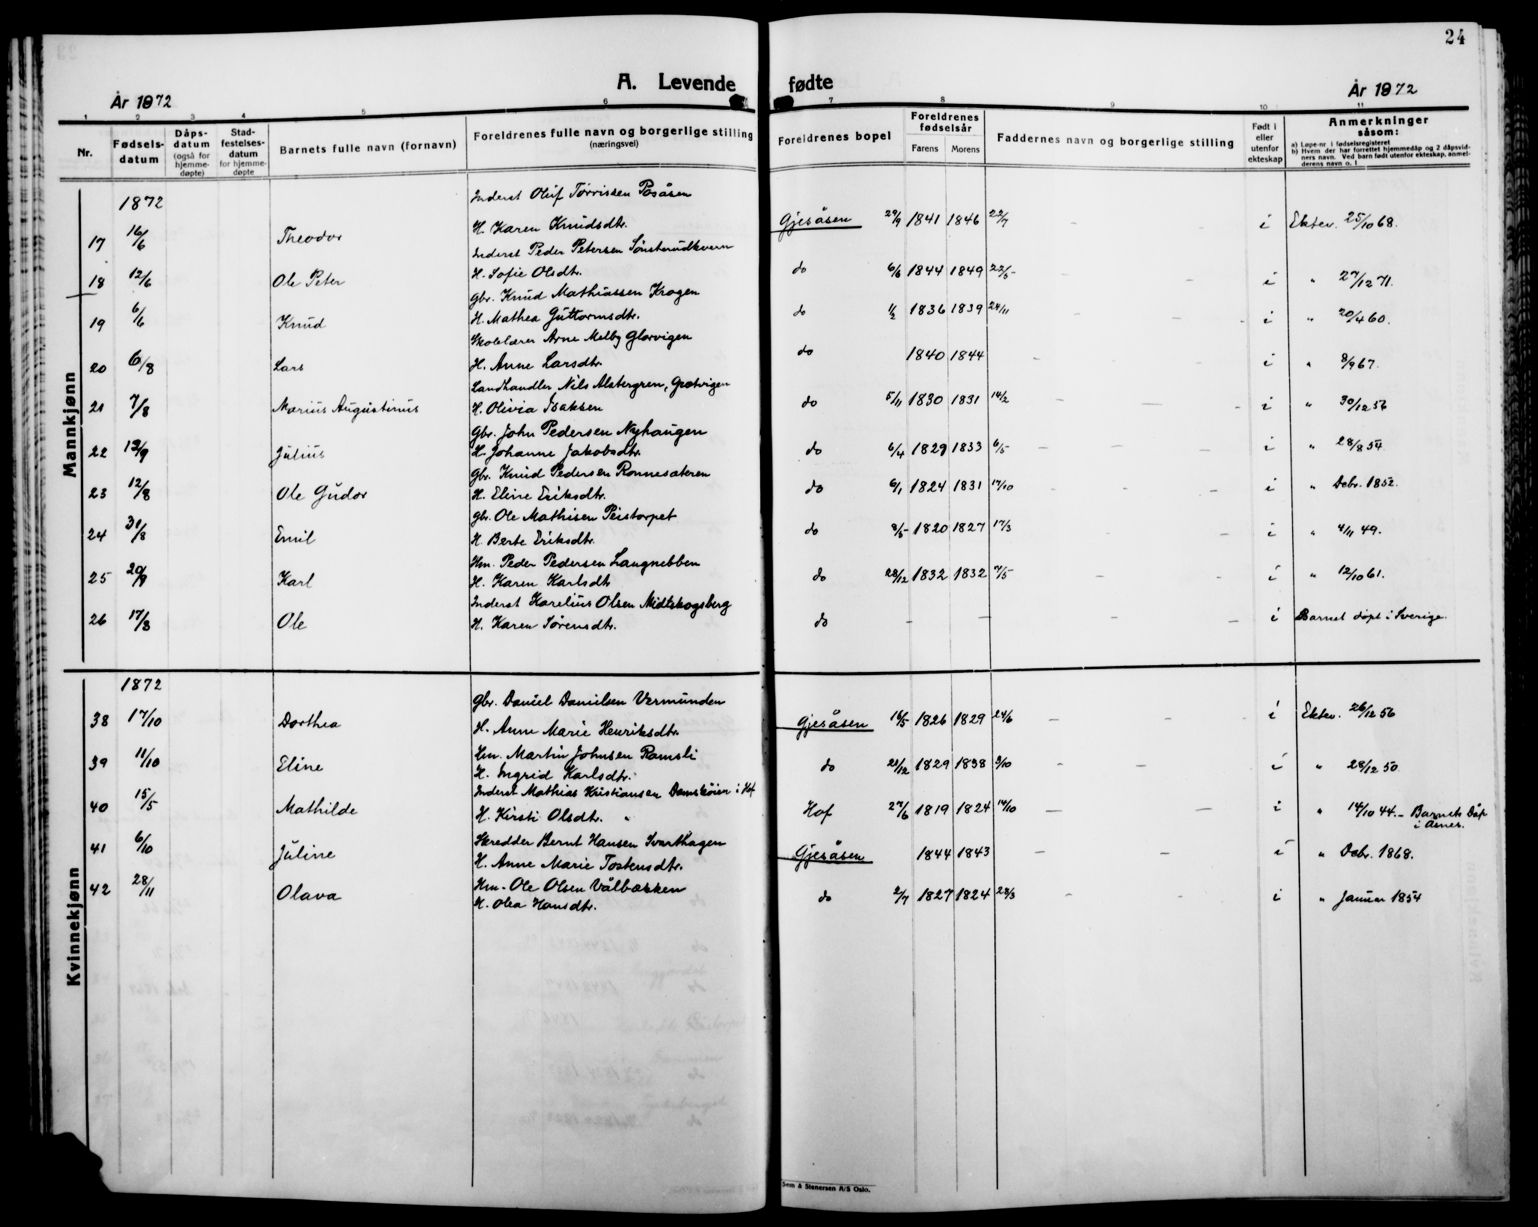 24
A. Levende fødte
År 1872
År 1872
1 2 3 4 5 6 7 8 9 10 11
Nr.
Fødsels-datum
Dåps-datum (også for hjemme-døpte)
Stad-festelses-datum for hjemme-døpte
Barnets fulle navn (fornavn)
Foreldrenes fulle navn og borgerlige stilling (næringsvei)
Foreldrenes bopel
Foreldrenes fødselsår
Farens Morens
Faddernes navn og borgerlige stilling
Født i eller utenfor ekteskap
Anmerkninger såsom:
a) Løpe-nr. i fødselsregisteret
b) Hvem der har forrettet hjemmedåp og 2 dåpsvidners navn. Ved barn født utenfor ekteskap, anmelderens navn o. l.
Mannkjønn
1872
Inderst Oluf Tørrissen Posåsen
17 16/6 Theodor H. Karen Knudsdtr. Gjesåsen 29/9 1841 1846 22/7 - - i Ektev. 25/10 68.
Inderst Peder Petersen Sønsterudkvern
18 12/6 Ole Peter H. Sofie Olsdtr. do 6/6 1844 1849 22/5 - - i " 27/12 71.
Gbr. Knud Mathiassen Krogen
19 6/6 Knud H. Mathea Guttormsdtr. do 1/2 1836 1839 24/11 - - i " 20/4 60.
Skolelærer Arne Melby Glorvigen
20 6/8 Lars H. Anne Larsdtr. do 1840 1844 - - i " 8/9 67.
Landhandler Nils Alstergren, Grøtvigen
21 7/8 Marius Augustinus H. Olivia Isaksen do 5/11 1830 1831 14/2 - - i " 30/12 56
Gbr. John Pedersen Nyhaugen
22 13/9 Julius H. Johanne Jakobsdtr. do 6/4 1829 1833 6/5 - - i " 28/8 54.
Gbr. Knud Pedersen Ronnesæteren
23 12/8 Ole Gudor H. Eline Eriksdtr. do 6/1 1824 1831 17/10 - - i " Debr. 1852.
Gbr. Ole Mathisen Peistorpet
24 31/8 Emil H. Berte Eriksdtr. do 8/5 1820 1827 17/3 - - i " 4/11 49.
Hm. Peder Pedersen Langnebben
25 20/9 Karl H. Karen Karlsdtr do 28/12 1832 1832 9/5 - - i " 12/10 61.
Inderst Karelius Olsen Midtskogsberg
26 17/8 Ole H. Karen Sørensdtr. do - - - - i Barnet døpt i Sverige.
Kvinnekjønn
1872
Gbr. Daniel Danielsen Vermunden
38 17/10 Dorthea H. Anne Marie Henriksdtr. Gjesåsen 16/5 1826 1829 24/6 - - i Ektev. 26/12 56
Hm. Martin Johnsen Ramsli
39 11/10 Eline H. Ingrid Karlsdtr. do 21/12 1829 1838 3/10 - - i " 28/12 50.
Inderst Mathias Kristiansen Damskoien i Hof
40 15/5 Mathilde H. Kirsti Olsdtr. " Hof 27/6 1819 1824 14/10 - - i " 14/10 44. - Barnet Døp i Åsnes.
Skredder Bernt Hansen Svarthagen
41 6/10 Juline H. Anne Marie Tostensdtr. Gjesåsen 1844 1843 - - i " Debr. 1868.
Hm. Ole Olsen Vålbækken
42 28/11 Olava H. Olea Hansdtr. do 2/7 1827 1824 28/3 - - i " Januar 1854
Sem & Stenersen A/S Oslo.